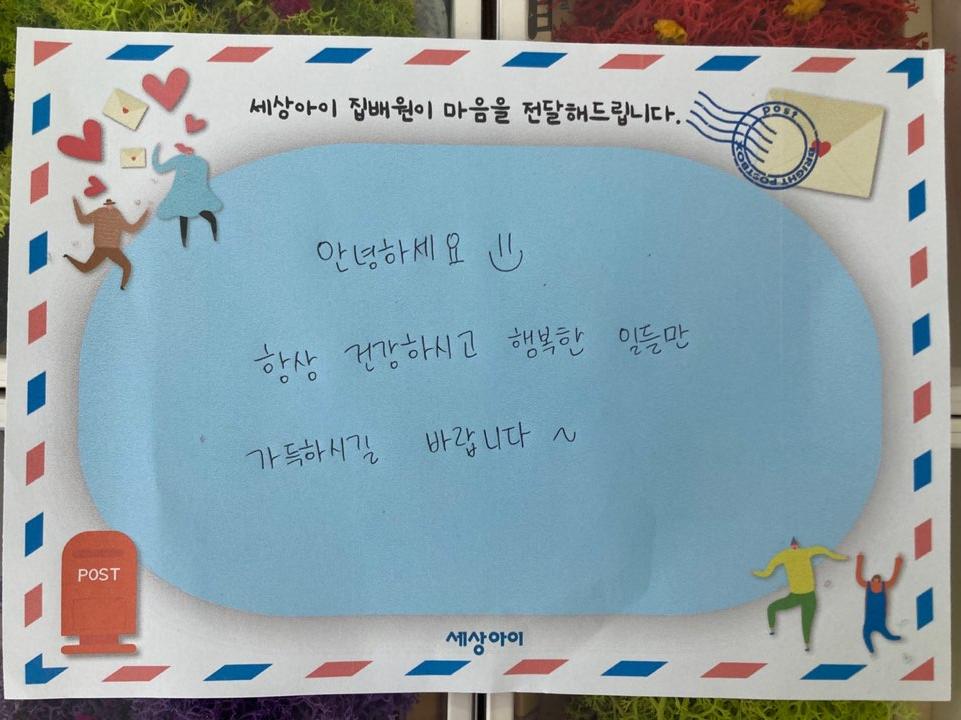 세상아이 집배원이 마음을 전달해드립니다.
POST
BRIGHT POSTBOX
안녕하세요
항상 건강하시고 행복한 일들만
가득하시길 바랍니다 ~
POST
세상아이